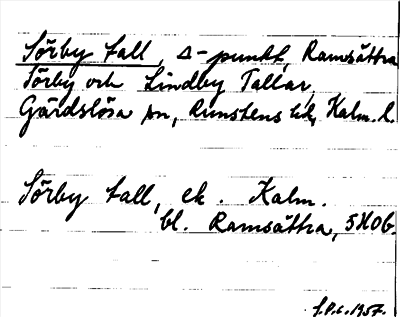 Sörby tall, Δ-punkt, Ramsättra
Sörby och Lindby Tallar,
Gärdslösa sn, Runstens hd, Kalm. l.
Sörby tall, ek. Kalm.
bl. Ramsättra, 5H0b.
1957.